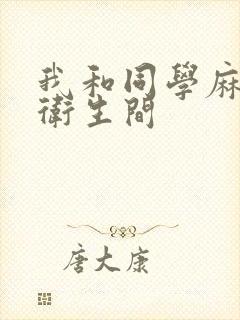 我和同學麻
衛生間
唐大康